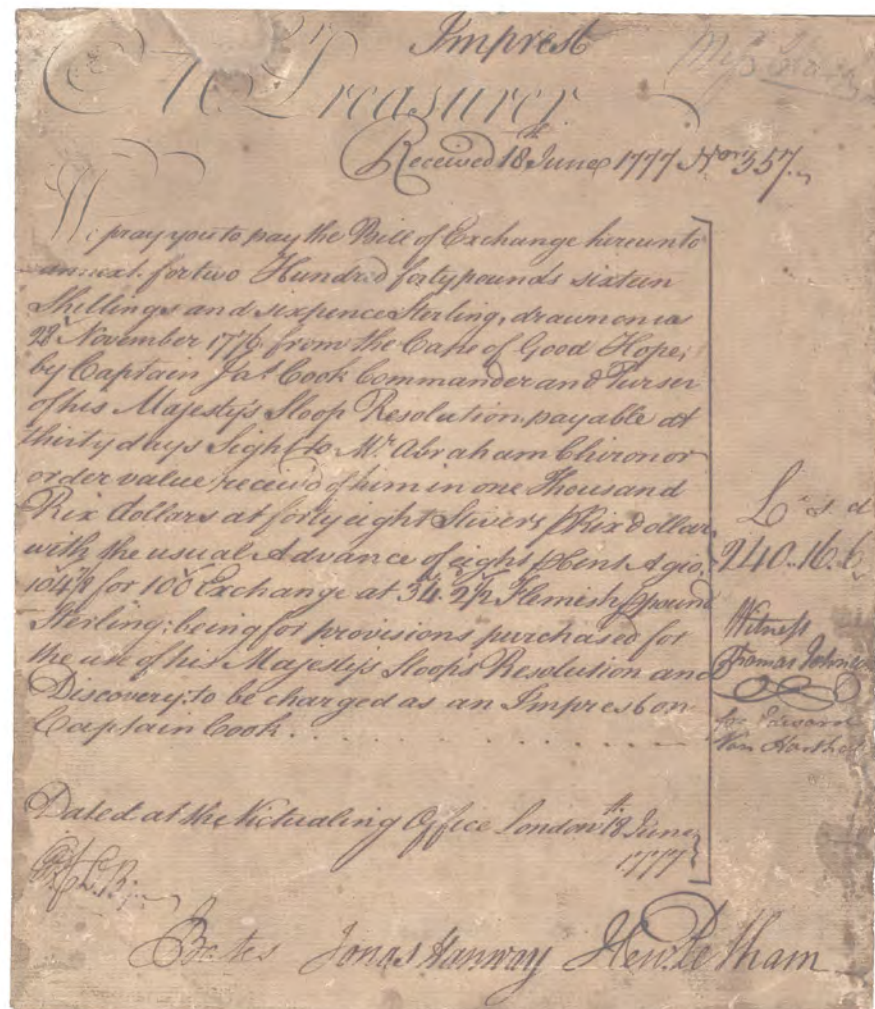 Imprest
Treasurer
Received 18th June 1777 No. 357.
We pray you to pay the Bill of Exchange hereunto
annext. for two Hundred forty pounds sixteen
Shillings and sixpence Sterling, drawn on us
28 November 1776 from the Cape of Good Hope,
by Captain Jas. Cook Commander and Purser
of his Majesty's Sloop Resolution payable at
thirty days Sight to Mr. Abraham Chiron or
order value receiv'd of him in one Thousand
Rix dollars at forty eight Stivers p Rix dollar,
with the usual Advance of eight p Cent Agio.
for 100 Exchange at Flemish p pound
Sterling; being for provisions purchased for
the use of his Majesty's Sloops Resolution and
Discovery: to be charged as an Imprest on
Captain Cook. . . . . . . . . . . .
£ s. d
240..16..6
Witness
Thomas
for
Van
Dated at the Victualing Office London 18th June
1777
Bates Jonas Hanway Hen: Pelham